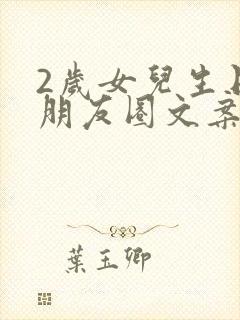 2歲女兒生
朋友圈文案
葉玉卿